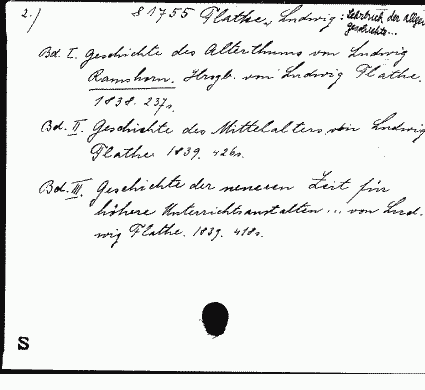 2.) 81755 Flathe, Ludwig: Lehrbuch der allgem
Geschichte...
Bd. I. Geschichte des Alterthums von Ludwig
Ramshorn. Hrsgb. von Ludwig Flathe.
1838. 237s.
Bd. II. Geschichte des Mittelalters von Ludwig
Flathe 1839. 426s.
Bd. III. Geschichte der neueren Zeit für
höhere Unterrichtsanstalten... von Lud-
wig Flathe. 1839. 418s.
S